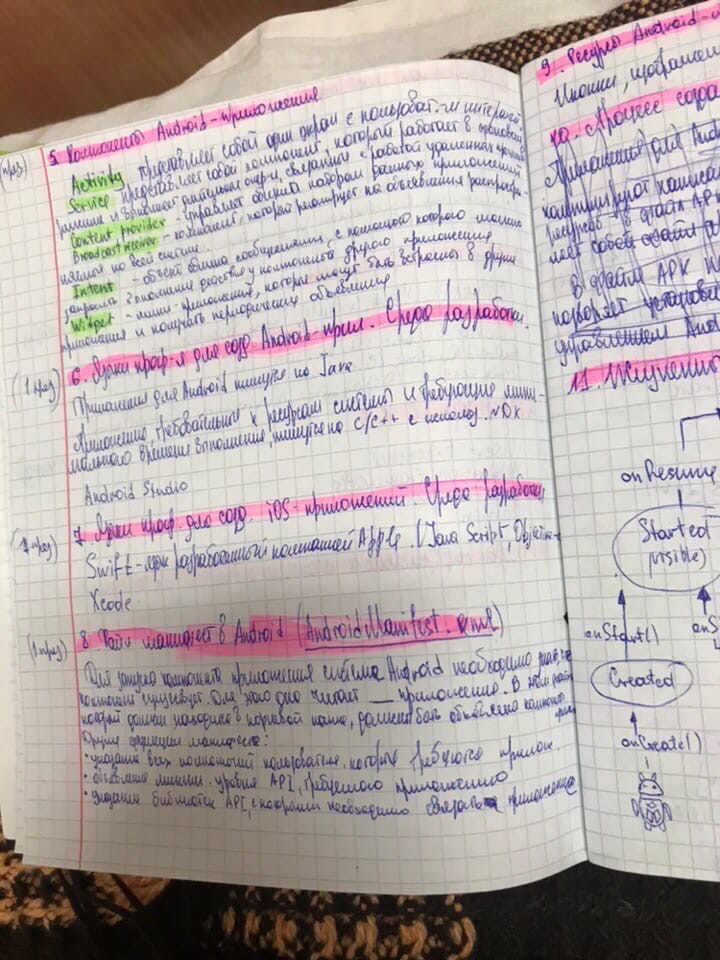 5. Компоненты Android-приложения
Activity представляет собой один экран с пользоват-м интерфей.
Service - представляет собой компонент, который работает в фоновом
режиме и выполняет длительные опер-и, связанные с работой удаленных
Content provider - управляет общим набором данных приложения
Broadcast receiver - компонент, который реагирует на объявления распростра-
няемые по всей системе.
Intent - объект обмена сообщениями, с помощью которого можно
запросить выполнение действия у компонента другого приложения
Widget - мини-приложения, которые могут быть встроены в другие
приложения и получать периодические обновления
(1 през) 6. Языки прогр-я для созд. Android-прил. Среда разработки.
Приложения для Android пишутся на Java
Приложения, требовательные к ресурсам системы и требующие мини-
мального времени выполнения, пишутся на C/C++ с использ. NDK
Android Studio
7. Языки прогр. для созд. iOS-приложений. Среда разработки
Swift - язык разработанный компанией Apple. (Java Script, Objective-
Xcode
(1 през) 8 Файл манифест в Android (AndroidManifest.xml)
Для запуска компонента приложения система Android необходимо знать, что
компонент существует. Для этого она читает __ приложения. В этом файле,
который должен находится в корневой папке, должны быть объявлены компонент
Другие функции манифеста:
• указание всех полномочий пользователя, которые требуются прилож.
• объявление миним. уровня API, требуемого приложению
• указание библиотек API, с которыми необходимо связать приложение
9. Ресурсы Android-
Иконки, изображения
10. Процесс созда
Приложения для Andr
компилируют
ресурсов в файл AP
В файл APK
управлением Andr
11.
onResume
Started
(visible)
onStart()
onS
Created
onCreate()